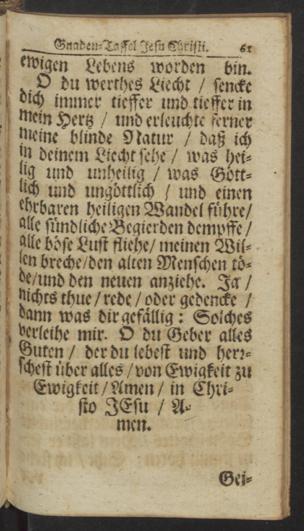 Gnaden-Taffel Jesu Christi. 61
ewigen Lebens worden bin.
O du werthes Liecht / sencke
dich immer tieffer und tieffer in
mein Hertz / und erleuchte ferner
meine blinde Natur / daß ich
in deinem Liecht sehe / was hei-
lig und unheilig / was Gött-
lich und ungöttlich / und einen
ehrbaren heiligen Wandel führe/
alle sündliche Begierden dempffe/
alle böse Lust fliehe/ meinen Wil-
len breche/den alten Menschen tö-
de/und den neuen anziehe. Ja /
nichts thue/ rede / oder gedencke /
dann was dir gefällig: Solches
verleihe mir. O du Geber alles
Guten / der du lebest und herr-
schest über alles/ von Ewigkeit zu
Ewigkeit/ Amen/ in Chri-
sto JEsu / A-
men.
Gei-